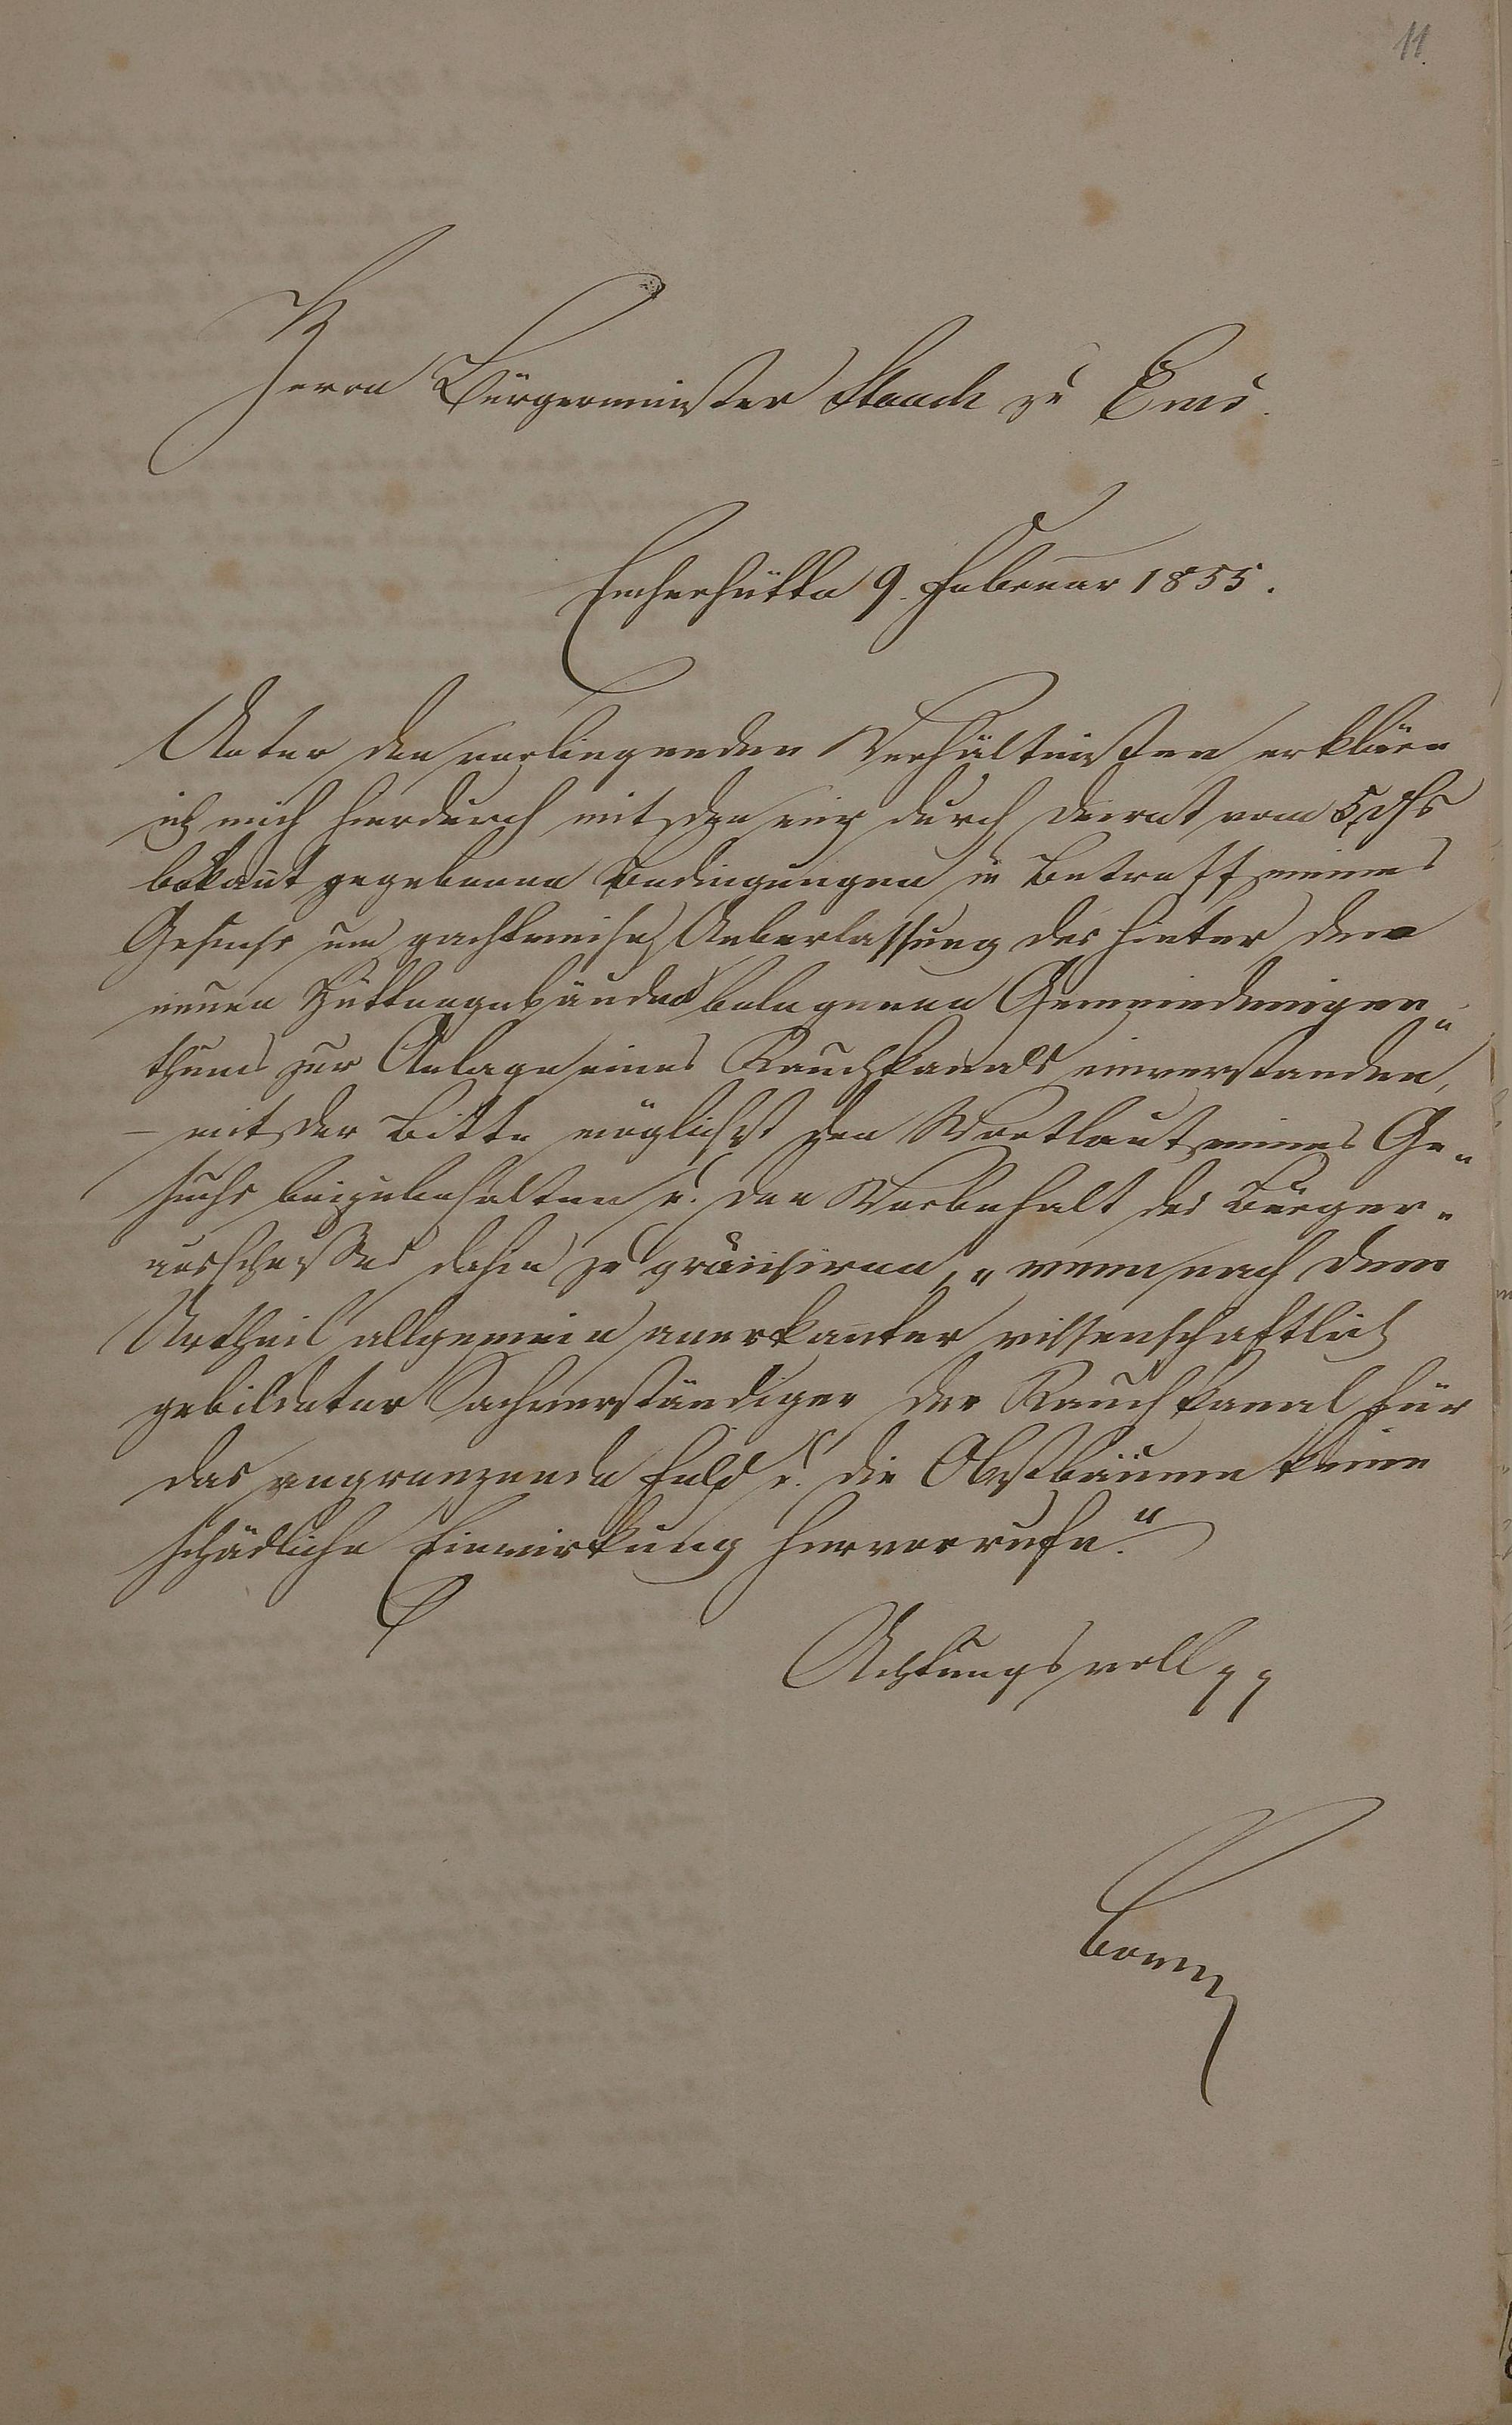 11.
Herrn Bürgermeister Staach zu Ems.
Emserhütte 9. Februar 1855.
Unter den vorliegenden Verhältnissen erkläre
ich mich hierdurch mit den mir durch Decret vom 5. dss
bekannt gegebenen Bedingungen in Betreff meines
Gesuchs um pachtweise Ueberlassung des hinter dem
neuen Hüttengebäude belegenen Gemeindeeigen„
thums zur Anlage eines Rauchkanals einverstanden,
– mit der Bitte möglichst den Wortlaut meines Ge„
suchs beizubehalten u. den Vorbehalt des Bürger„
ausschusses dahin zu präcisiren, „wenn nach dem
Urtheil allgemein anerkannter wissenschaftlich
gebildeter Sachverständiger der Rauchkanal für
das angrenzende Feld u. die Obstbäume keine
schädliche Einwirkung hervorrufe.“
Achtungsvoll